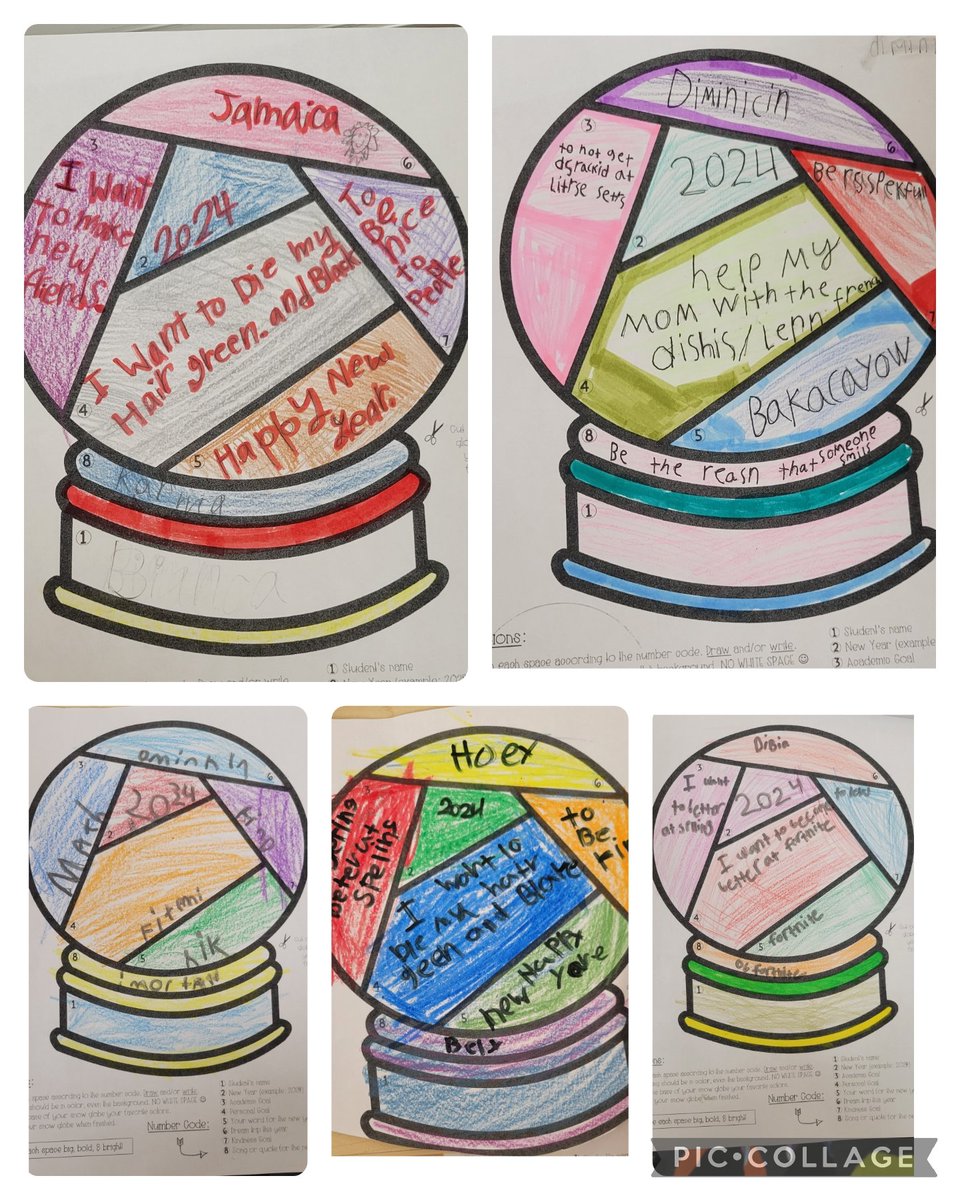 Jamaica
3
6
I want
To make
new
friends.
2024
2
To
Be
nice
to
People
7
I Want to Die my
Hair green. and Black
4
Happy New
year.
5
8
Karma
1
Bianca
1 Student's name
Diminicin
3
6
to not get
2024
2
at
help My
mom with the
dishis/
4
Bakacayow
5
7
8
Be the reasn that someone
smils
1
each space according to the number code. Draw and/or write.
background. NO WHITE SPACE
1 Student's name
2 New Year (example
3 Academic Goal
3
6
Math
2024
2
kind
7
4
5
8
1
each space according to the number code. Draw and/or write.
should be in color, even the background. NO WHITE SPACE
of your snow globe your favorite colors.
snow globe when finished.
each space big, bold, & bright!
Number Code:
1 Student's name
2 New Year (example: 2024)
3 Academic Goal
4 Personal Goal
5 Your word for the new
6 Dream trip this year
7 Kindness Goal
8 Song or quote for the
HOEX
6
2024
2
Spelins
to
Be.
I want to
die my hair
green and Blake
4
new Happy
yare
5
8
1
3
6
I want
to better
at splling
2024
2
I want to become
better at fortnite
7
4
fortnite
5
8
1
each space according to the number code. Draw and/or write.
should be in color, even the background. NO WHITE SPACE
of your snow globe your favorite colors.
snow globe when finished.
each space big, bold, & bright!
Number Code:
1 Student's name
2 New Year (example: 2024)
3 Academic Goal
4 Personal Goal
5 Your word for the new
6 Dream trip this year
7 Kindness Goal
8 Song or quote for the new
PIC•COLLAGE